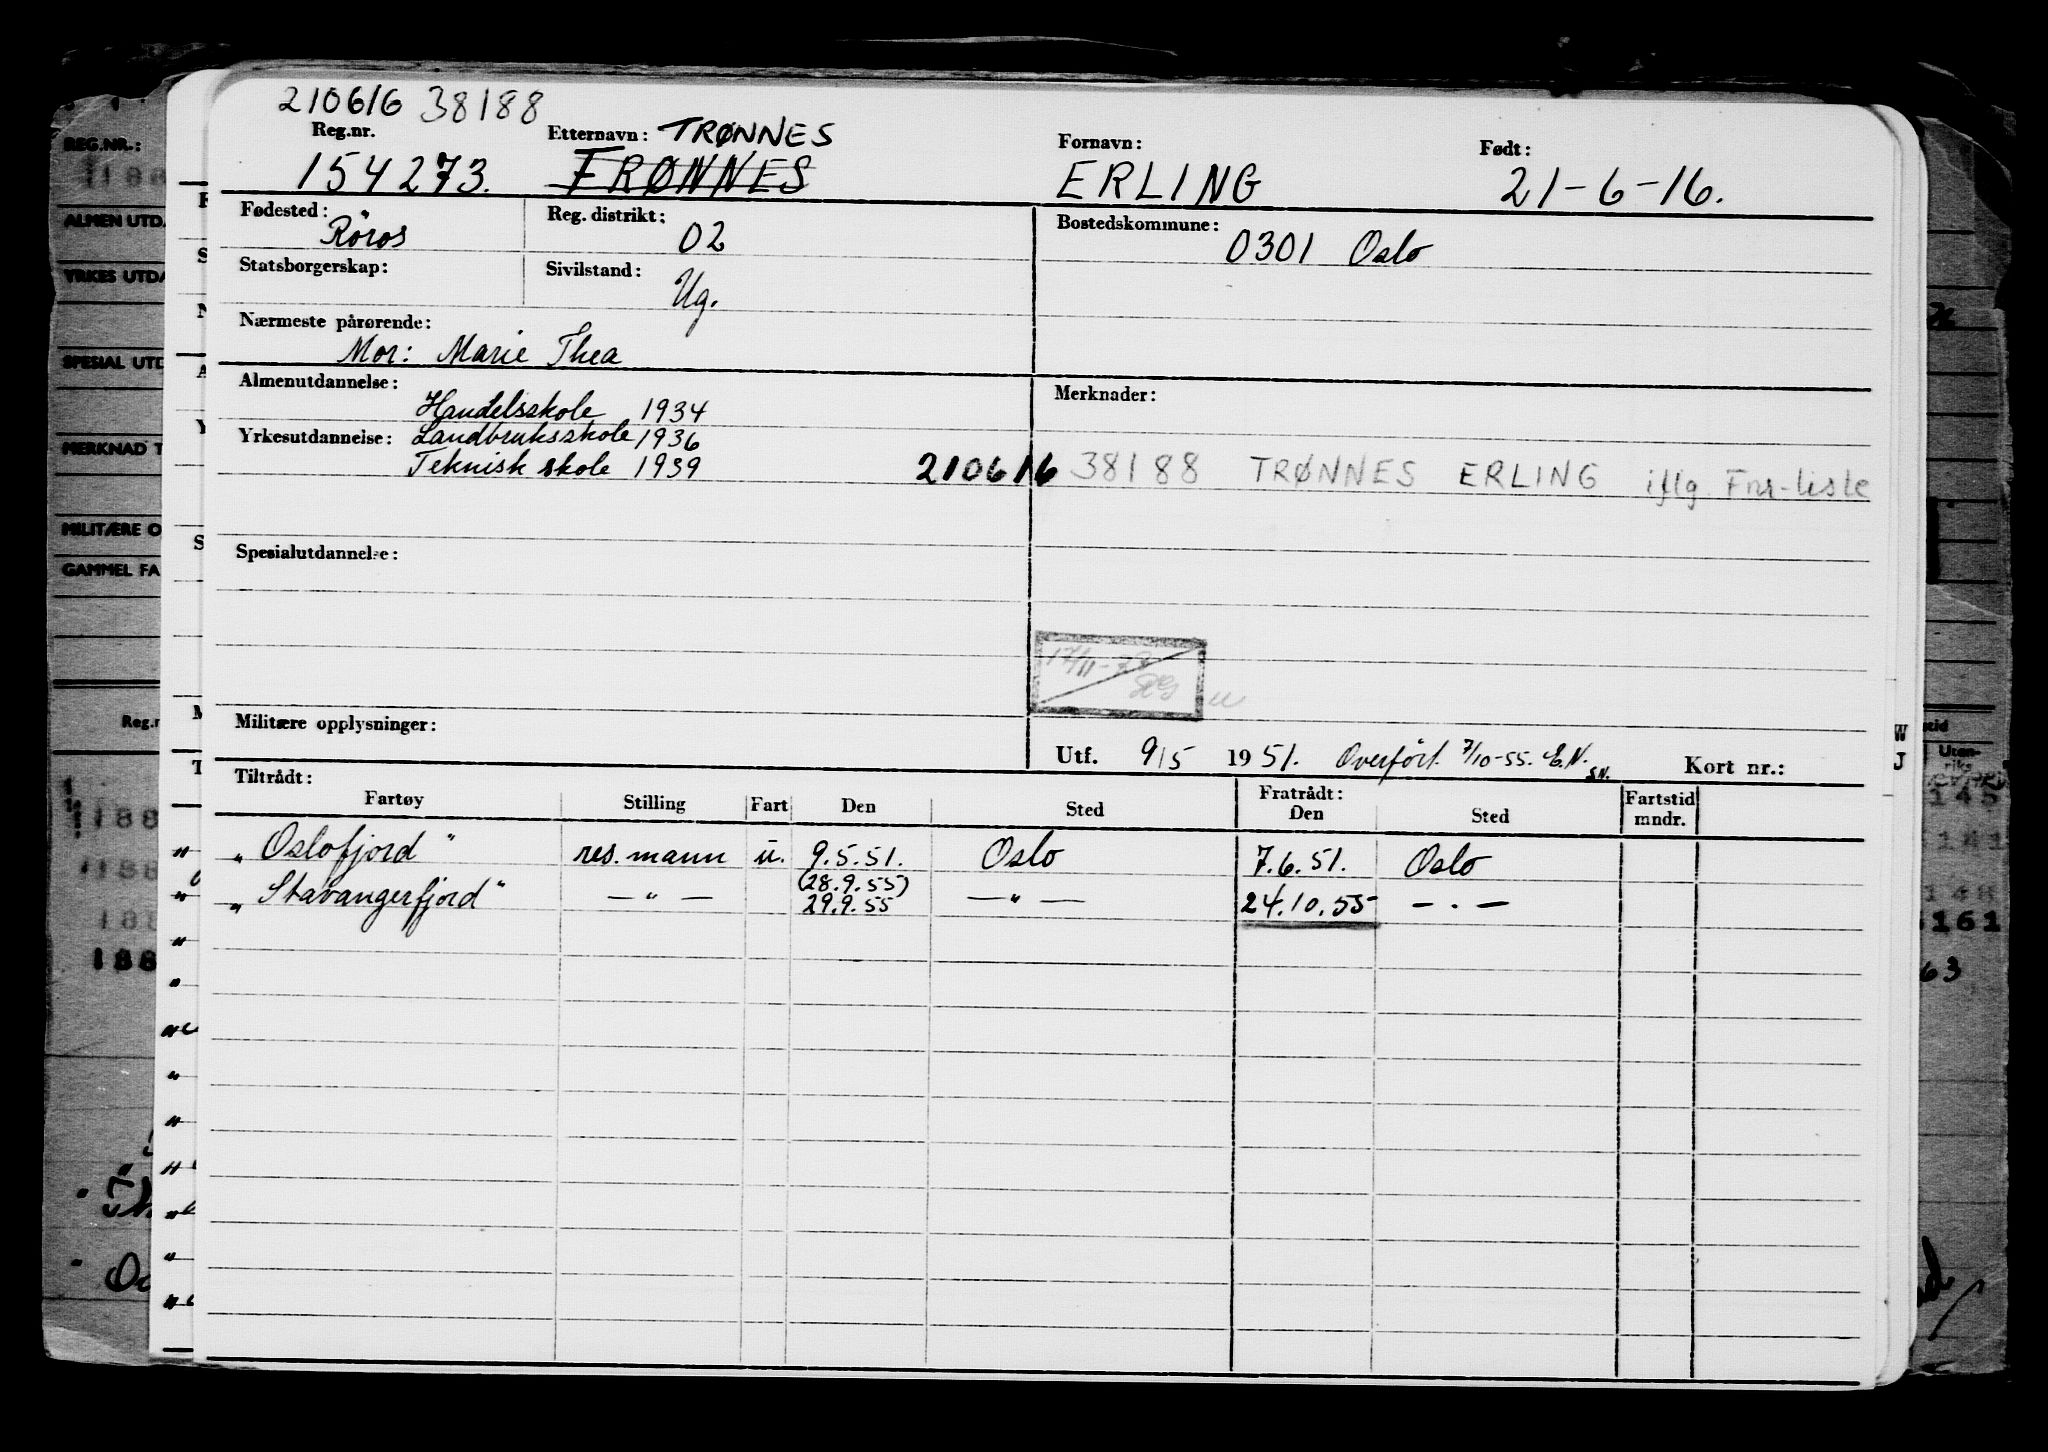 210616 38188
Reg.nr. Etternavn: TRØNNES Fornavn: Født:
154273. FRØNNES ERLING 21-6-16.
Fødested: Röros Reg. distrikt: 02 Bostedskommune: 0301 Oslo
Statsborgerskap: Sivilstand: Ug.
Nærmeste pårørende:
Mor: Marie Thea
Almenutdannelse: Merknader:
Handelsskole 1934
Yrkesutdannelse: Landbruksskole 1936
Teknisk skole 1939
210616 38188 TRØNNES ERLING iflg. Fnr-liste
Spesialutdannelse:
17/11-73
Militære opplysninger:
Utf. 9/5 1951. Overfört 7/10-55. E.N. Kort nr.:
S.N.
Tiltrådt: Fratrådt:
Fartøy Stilling Fart Den Sted Den Sted Fartstid mndr.
„Oslofjord" res. mann u. 9.5.51. Oslo 7.6.51. Oslo
(28.9.55)
„Stavangerfjord" — " — 29.9.55 — " — 24.10.55 — " —
REG.NR.:
ALMEN UTDA
YRKES UTDA
SPESIAL UTD
MERKNAD T
MILITÆRE O
GAMMEL FA
Reg.n
188
188
188
188
W
J
Utenriks
145
141
148
161
63